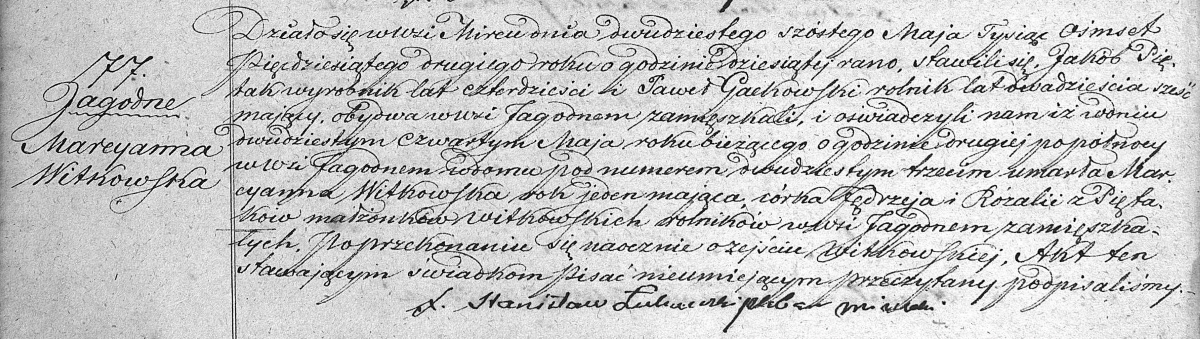 77.
Jagodne
Marcyanna
Witkowska
Działo się w wsi Mircu dnia dwudziestego szóstego Maja Tysiąc Ośmset
Pięćdziesiątego drugiego roku o godzinie dziesiątej rano, stawili się, Jakób Pię-
tak wyrobnik lat czterdzieści i Paweł Gackowski rolnik lat dwadzieścia sześć
mający, obydwa w wsi Jagodnem zamięszkali, i oświadczyli nam iż w dniu
dwudziestym czwartym Maja roku bieżącego o godzinie drugiej po północy
w wsi Jagodnem w domu pod numerem dwudziestym trzecim umarła Mar-
cyanna Witkowska rok jeden mająca, córka Jędrzeja i Rozalii z Pięta-
ków małżonków Witkowskich rolników w wsi Jagodnem zamięszka-
łych. Po przekonaniu się naocznie o zejściu Witkowskiej, Akt ten
stawającym świadkom pisać nieumiejącym przeczytany podpisaliśmy.
X. Stanisław